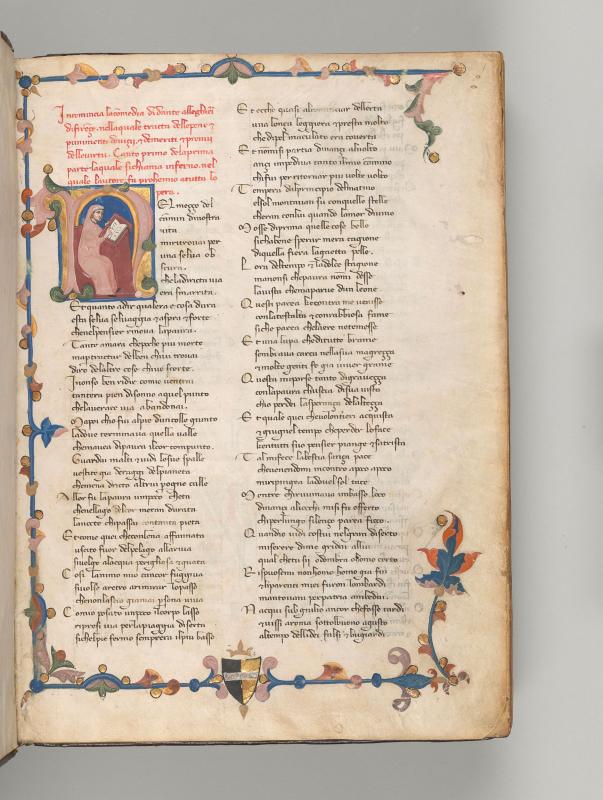 Incomincia la comedia di dante alleghieri
di firenze nella quale tracta delle pene et
punimenti de vizi et demeriti et premii
delle virtu. Canto primo dela prima
parte la quale si chiama inferno. nel
quale lautore fa prohemio a tucto lo
pera.
El mezzo del
camin di nostra
uita
mi ritrouai per
una selua ob
scura.
che la diricta uia
era smarrita.
Et quanto adir qualera e cosa dura
esta selua seluaggia et aspra et forte
che nel pensier rinoua la paura.
Tanto amara che poche piu morte
ma per tractar del ben chiui trouai
diro de laltre cose chiuo scorte.
I non so ben ridir comio uentrai
tantera pien di sonno a quel punto
che la uerace uia abandonai.
Ma poi chio fui al pie dun colle giunto
la doue terminaua quella ualle
che mauea di paura il cor compunto.
Guardai in alto et uidi le sue spalle
uestite gia de raggi del pianeta
che mena dricto altrui per ogne calle
Allor fu la paura un poco cheta
che nel lago del cor mera durata
la nocte chi passai con tanta pieta
Et come quei che con lena affannata
uscito fuor del pelago alla riua
si uolge a lacqua perigliosa et guata
Cosi lanimo mio cancor fuggiua
si uolse aretro a rimirar lo passo
che non lascio giamai persona uiua
Comio posato un poco il corpo lasso
ripresi uia per la piaggia diserta
si chel pie fermo sempre era il piu basso
Et ecche quasi al cominciar dellerta
una lonza leggiera et presta molto
che di pel maculato era couerta
Et non mi si partia dinanzi al uolto
anzi impediua tanto il mio camino
chi fui per ritornar piu uolte uolto
Tempera dal principio del matino
el sol montaua su con quelle stelle
cheran con lui quando lamor diuino
Mosse di prima quelle cose belle
si cha bene sperar mera cagione
di quella fiera la gaetta pelle.
Lora del tempo et la dolce stagione
ma non si che paura non mi desse
la uista che mapparue dun leone.
Questi parea che contra me uenisse
con la testalta et con rabbiosa fame
si che parea che laere ne temesse
Et una lupa che di tutte brame
sembiaua carca nella sua magrezza
et molte genti fe gia uiuer grame
Questa mi porse tanto di grauezza
con la paura chuscia di sua uista
chio perdei la speranza de laltezza
Et quale quei che uolontieri acquista
et giugnel tempo che perder lo face
ken tutti suo pensier piange et satrista
Tal mi fece la bestia sanza pace
che uenendomi incontro a poco a poco
mi ripingea la douel sol tace
Mentre chi ruuinaua in basso loco
dinanzi alliocchi mi si fu offerto
chi per lungo silenzo parea fioco.
Quando uidi costui nel gran diserto
miserere di me gridai allui
qual che tu sii od ombra o homo certo
Rispuosemi non homo homo gia fui
et li parenti miei furon lombardi
mantouani per patria amendui.
Nacqui sub giulio ancor che fosse tardi
et uissi a roma sottol buono agusto
al tempo delli dei falsi et bugiardi